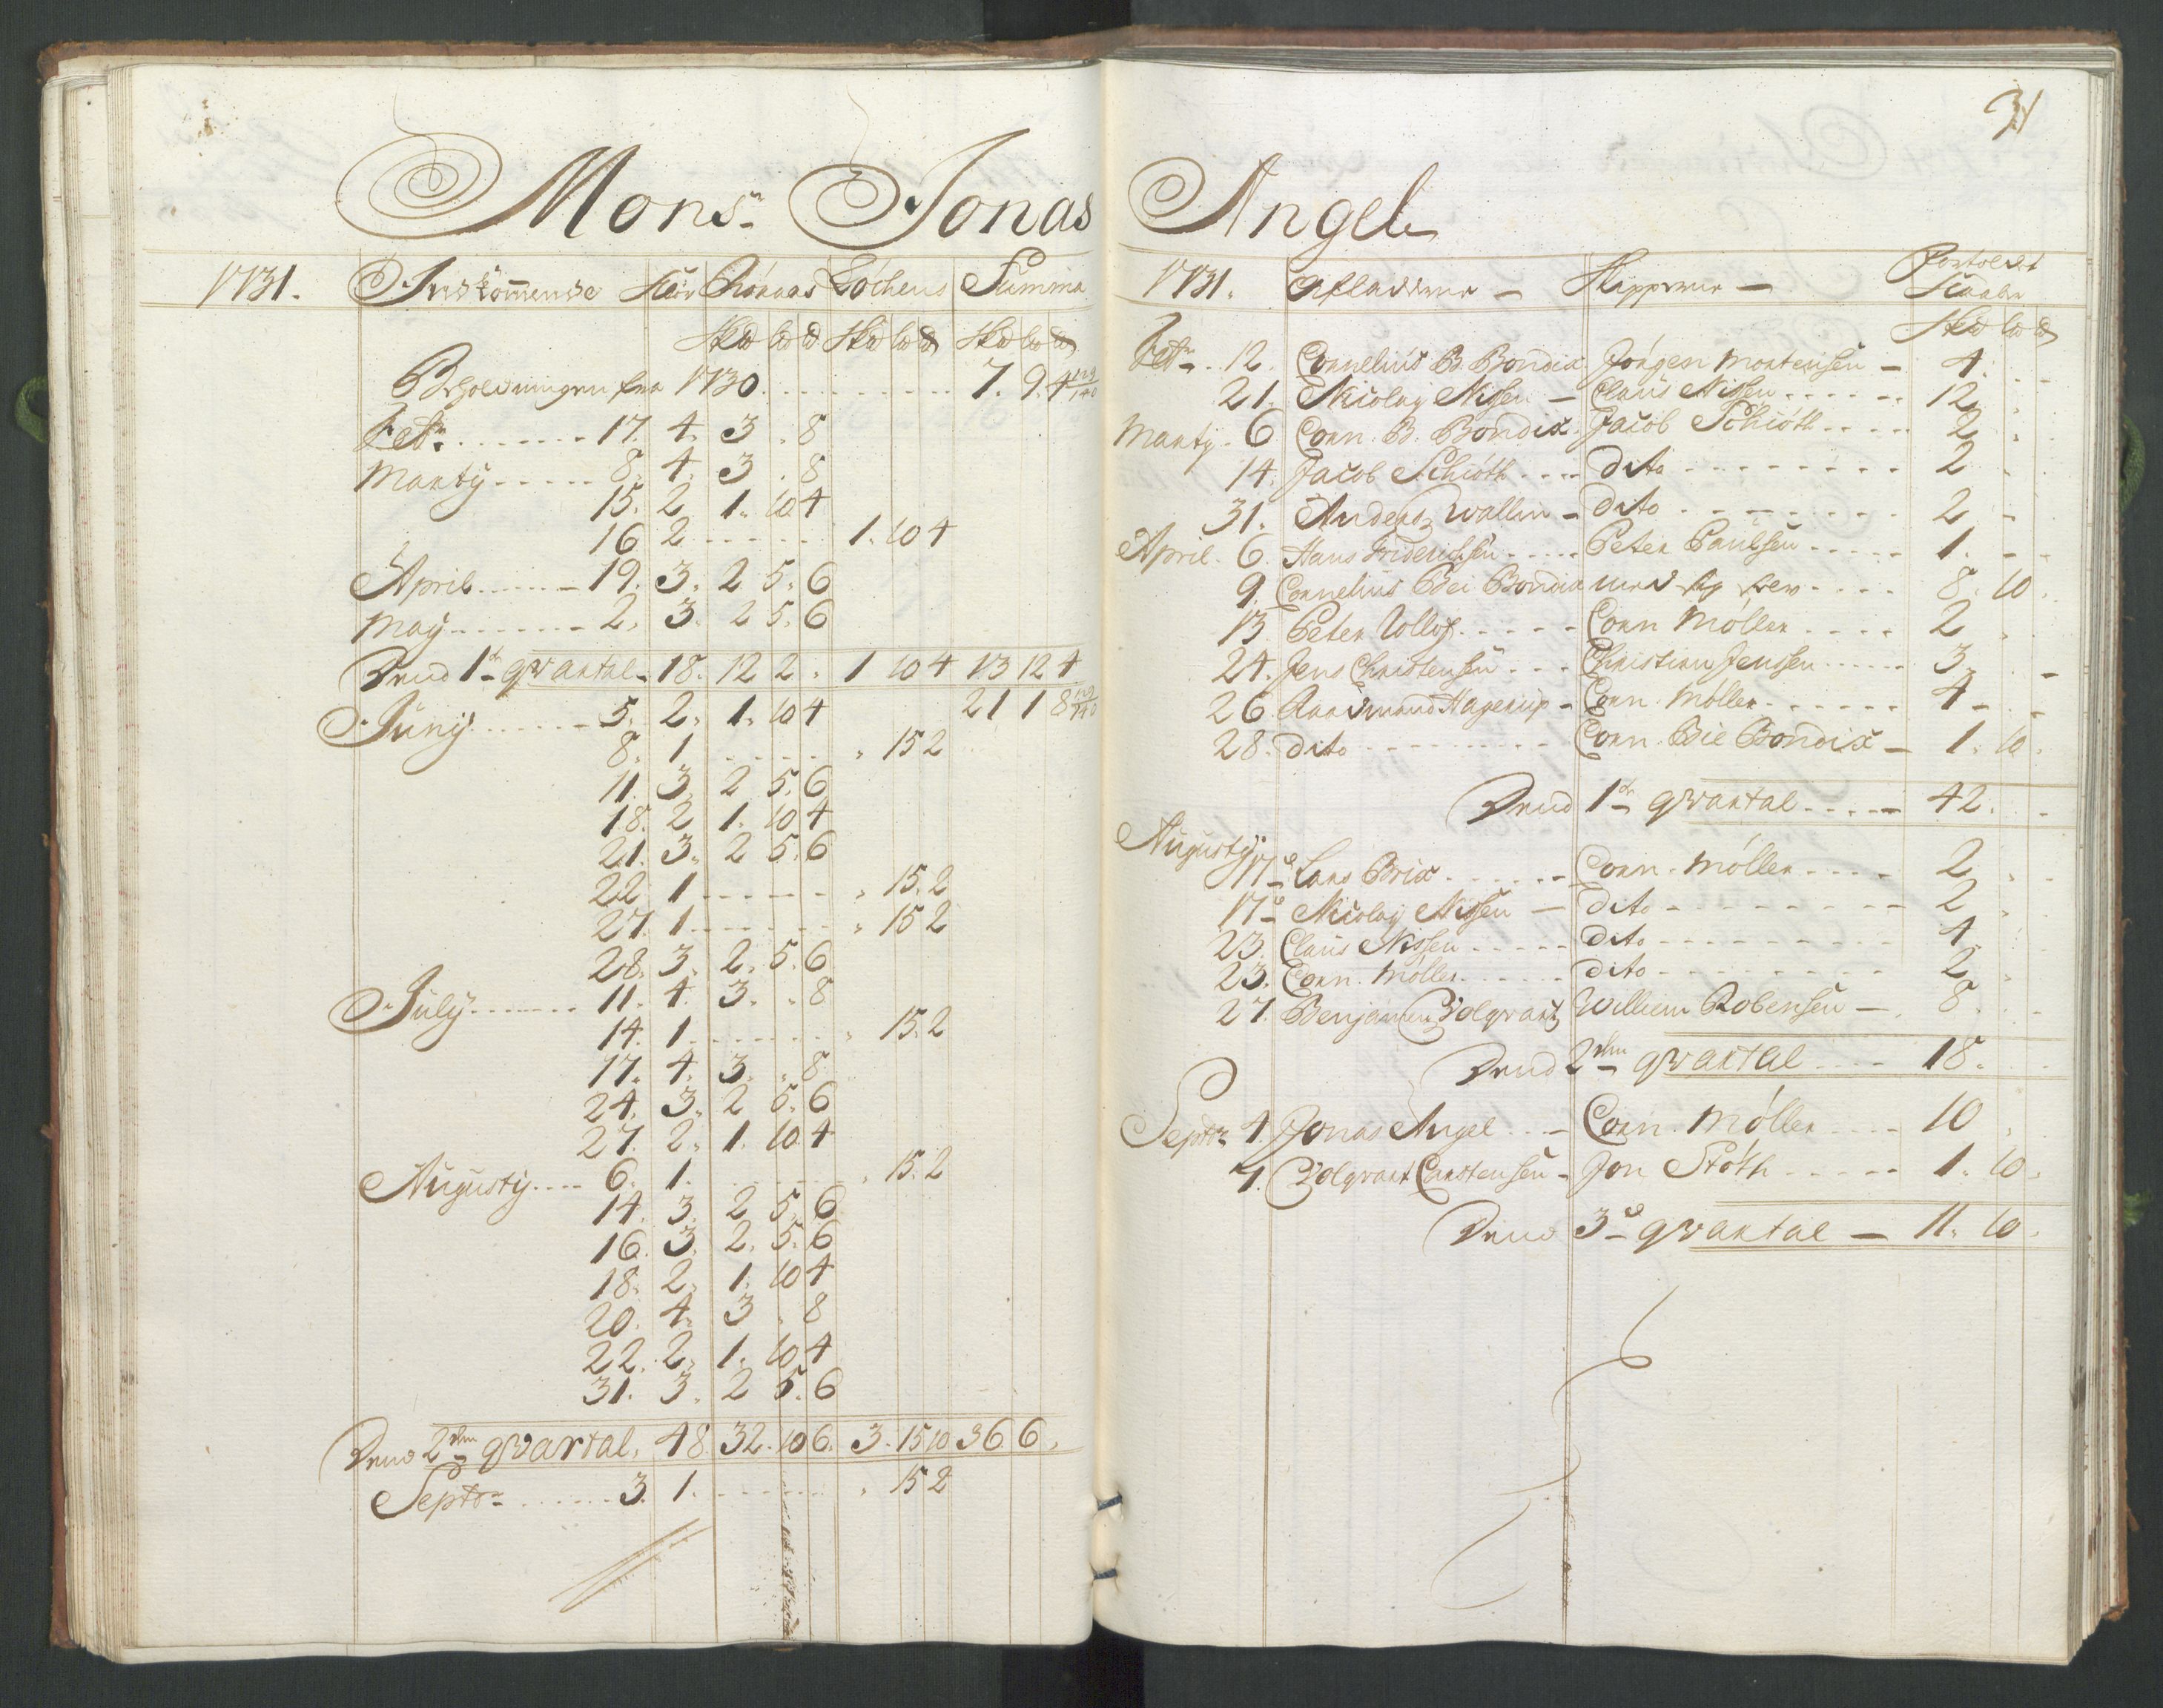 31
Mons.r Jonas Angel
1731. Indkommende Kaar Röraas Löchens Summa
Skd lod d Skd lod d Skd lod d
Beholdningen fra 1730 . . . . 7. 9. 4 119/140
Feb. . . . . 17. 4. 3 . 8
Marty . . . . 8. 4. 3 . 8
15. 2 1. 10 4
16 2 . . . . 1. 10 4
April . . . . 19. 3. 2 5. 6
May . . . . 2. 3. 2 5. 6
Dend 1te qvartal 18. 12 2 . 1 10 4 13 12 4
21 1 8 119/140
Juny . . . . 5. 2. 1. 10 4
8. 1 . . . . 15 2
11. 3. 2 5. 6
18. 2 1. 10 4
21. 3. 2 5. 6
22 1 . . . . 15. 2
27. 1 . . . . 15 2
28. 3. 2. 5. 6
July . . . . 11. 4. 3. . 8
14. 1 . . . . 15. 2
17. 4. 3. . 8
24. 3. 2 5. 6
27. 2. 1. 10 4
Augusty . . . . 6. 1. . . . . 15. 2
14. 3. 2 5. 6
16. 3. 2. 5. 6
18. 2. 1. 10 4
20. 4. 3 . 8
22. 2. 1. 10 4
31. 3. 2 5. 6
Dend 2den qvartal. 48. 32. 10 6. 3. 15 10 36 6.
Septr . . . . 3. 1. . . . . 15 2
1731. Afladerne Skipperne Fortoldet Kaaber
Skd lod d
Feb. 12. Cornelius B. Bondix Jörgen Mortensen 4.
21. Nicolay Nissen Claus Nissen . . . . 12
Marty. 6 Corn. B. Bondix Jacob Schiöth . . . . 2
14. Jacob Schiöth . . . . dito . . . . 2
31. Anders Wallin dito . . . . 2
April. 6. Hans Friderichsen . . . . Peter Paulsen . . . . 1.
9. Cornelius Bei Bondix med sig selv . . . . 8. 10.
13. Peter Wollof . . . . Corn Möller . . . . 2
24. Jens Christensen . . . Christian Jenssen . . . . 3.
26. Hagerup Corn. Möller . . . . 4
28. dito . . . . Corn. Bie Bondix 1. 10.
Dend 1te qvartal . . . . 42.
Augusty 17d Lars Brix . . . . Corn. Möller . . . . 2
17d Nicolay Nissen dito . . . . 2
23. Claus Nissen . . . . dito . . . . 4
23. Corn. Möller . . . . dito . . . . 2
27. Benjamin Volqvartz William Robensen 8
Dend 2den qvartal . . . . 18.
Septr 4. Jonas Angel . . . Corn. Möller . . . . 10
7. Volqvart Carstensen Jon Stöth . . . . 1. 10.
Dend 3d qvartal 11. 10.